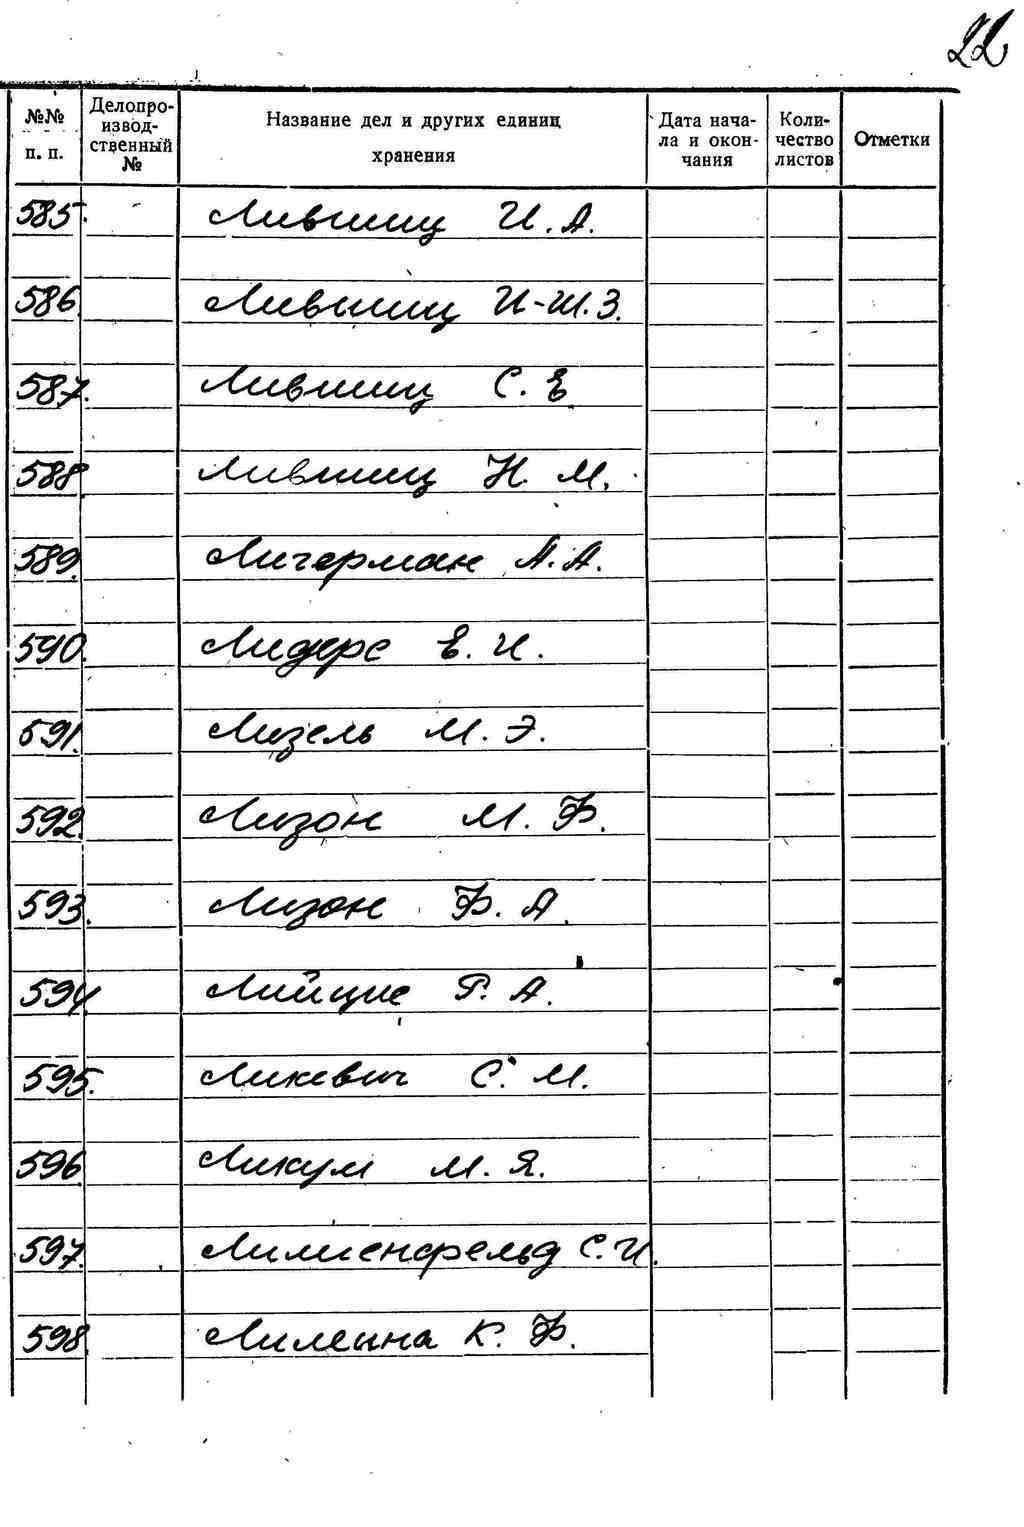 22
№№ п. п. Делопро- извод- ственный № Название дел и других единиц хранения Дата нача- ла и окон- чания Коли- чество листов Отметки
585. Лившиц И. А.
586. Лившиц И-Ш. З.
587. Лившиц С. Е
588. Лившиц Н. М.
589. Лигерман А. А.
590. Лидерс Е. И.
591. Лизель М. Э.
592. Лизон М. Ф.
593. Лизон Ф. А.
594. Лийцис Р. А.
595. Ликевич С. М.
596. Ликум М. Я.
597. Лилиенфельд С. И.
598. К. Ф.